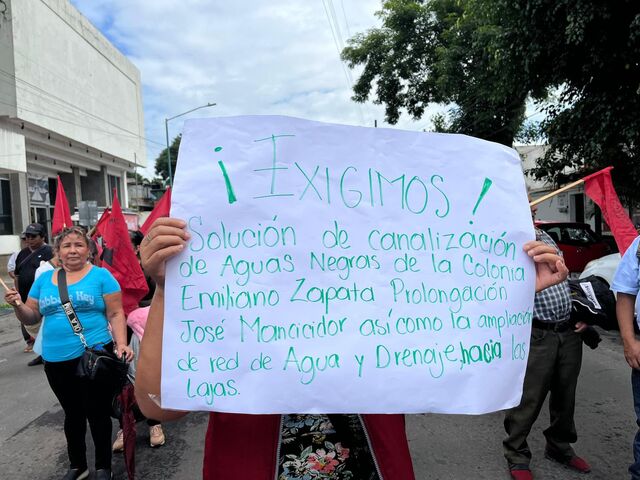 ¡Exigimos!
Solución de canalización
de Aguas Negras de la Colonia
Emiliano Zapata Prolongación
José Mancicidor así como la ampliación
de red de Agua y Drenaje, hacia las
Lajas.